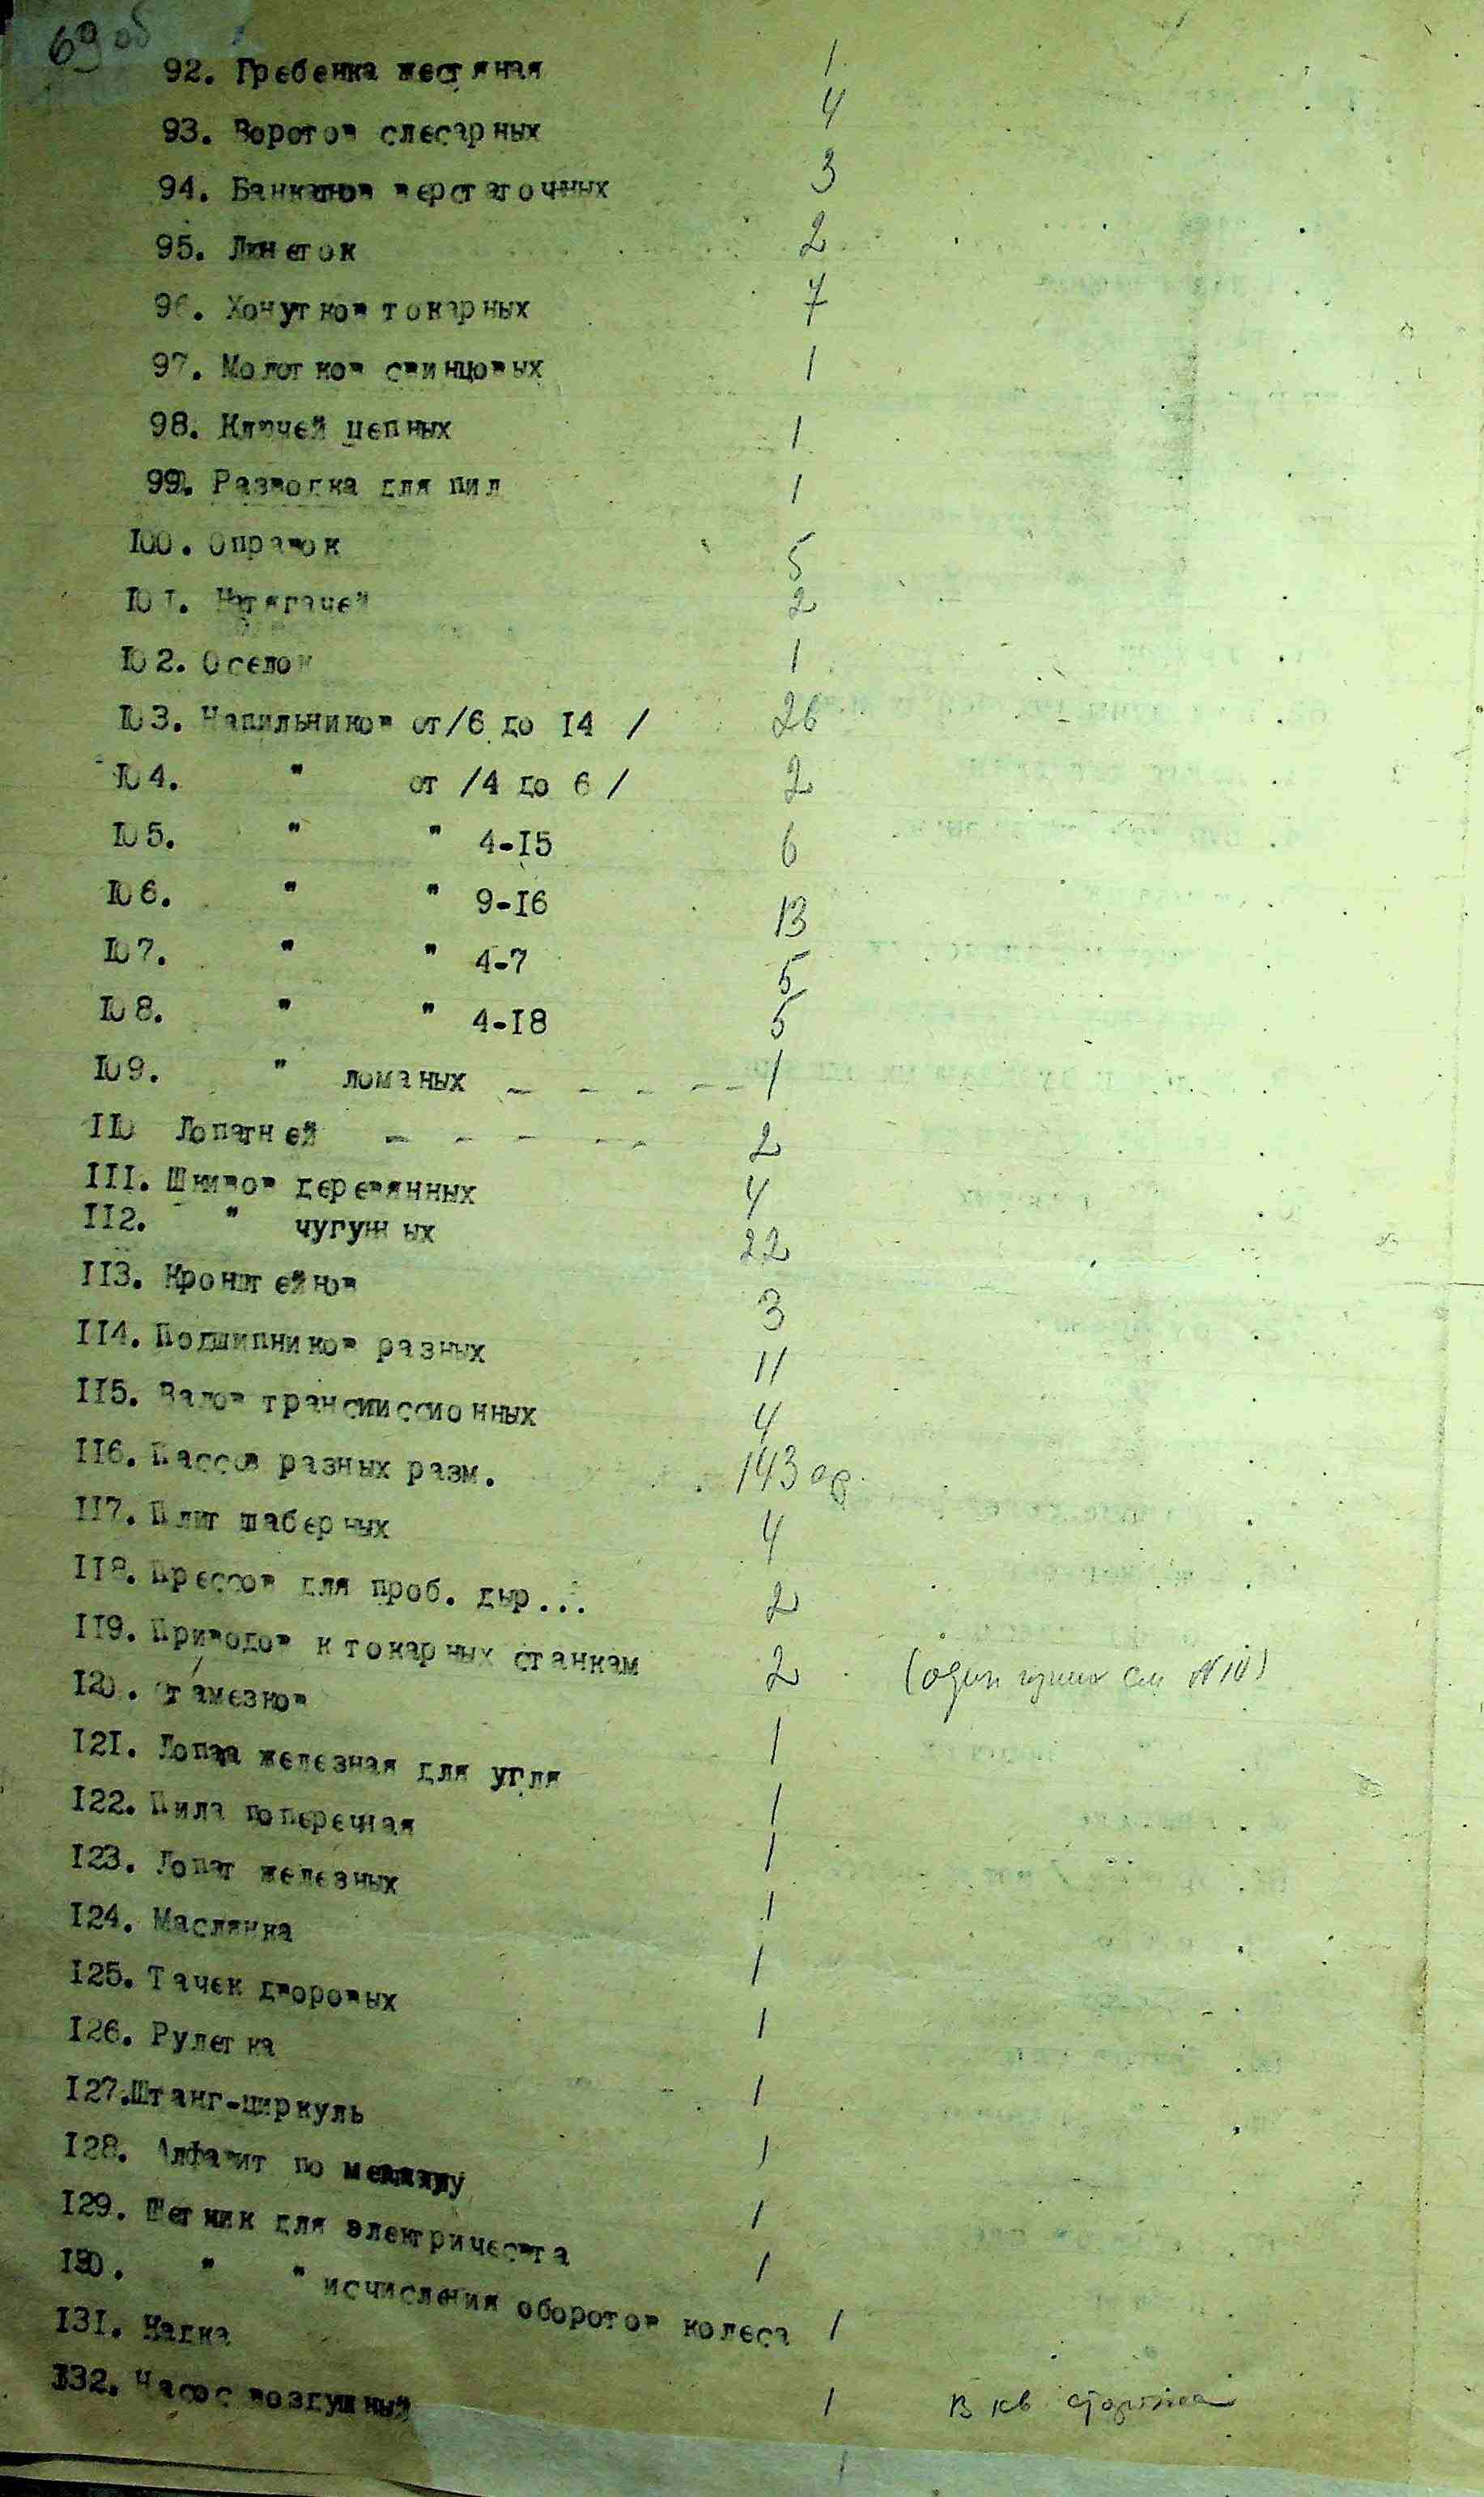 69 об
92. Гребенка жестяная 1
93. Воротов слесарных 4
94. Банканов верстаточных 3
95. Линеток 2
96. Хонутков токарных 7
97. Молотков свинцовых 1
98. Ключей цепных 1
99. Разводка для пил 1
100. Оправок 5
101. Натягачей 2
102. Оселок 1
103. Напильников от/6 до 14 / 26
104. " от /4 до 6 / 2
105. " " 4-15 6
106. " " 9-16 13
107. " " 4-7 5
108. " " 4-18 5
109. " ломаных - - - - - 1
110 Лопатней - - - - - 2
111. Шкивов деревянных 4
112. " чугунных 22
113. Кронштейнов 3
114. Подшипников разных 11
115. Валов трансмиссионных 4
116. Пассов разных разм. 143
117. Плит шаберных 4
118. Прессов для проб. дыр... 2
119. Приводов к токарных станкам 2 (один см №10)
120. Стамезков 1
121. Лопата железная для угля 1
122. Пила поперечная 1
123. Лопат железных 1
124. Маслянка 1
125. Тачек дворовых 1
126. Рулетка 1
127. Штанг-циркуль 1
128. Алфавит по металлу 1
129. Щетчик для электричества 1
130. " " исчисления оборотов колеса 1
131. Кадка 1
132. Насос воздушный 1 В кв сторожа